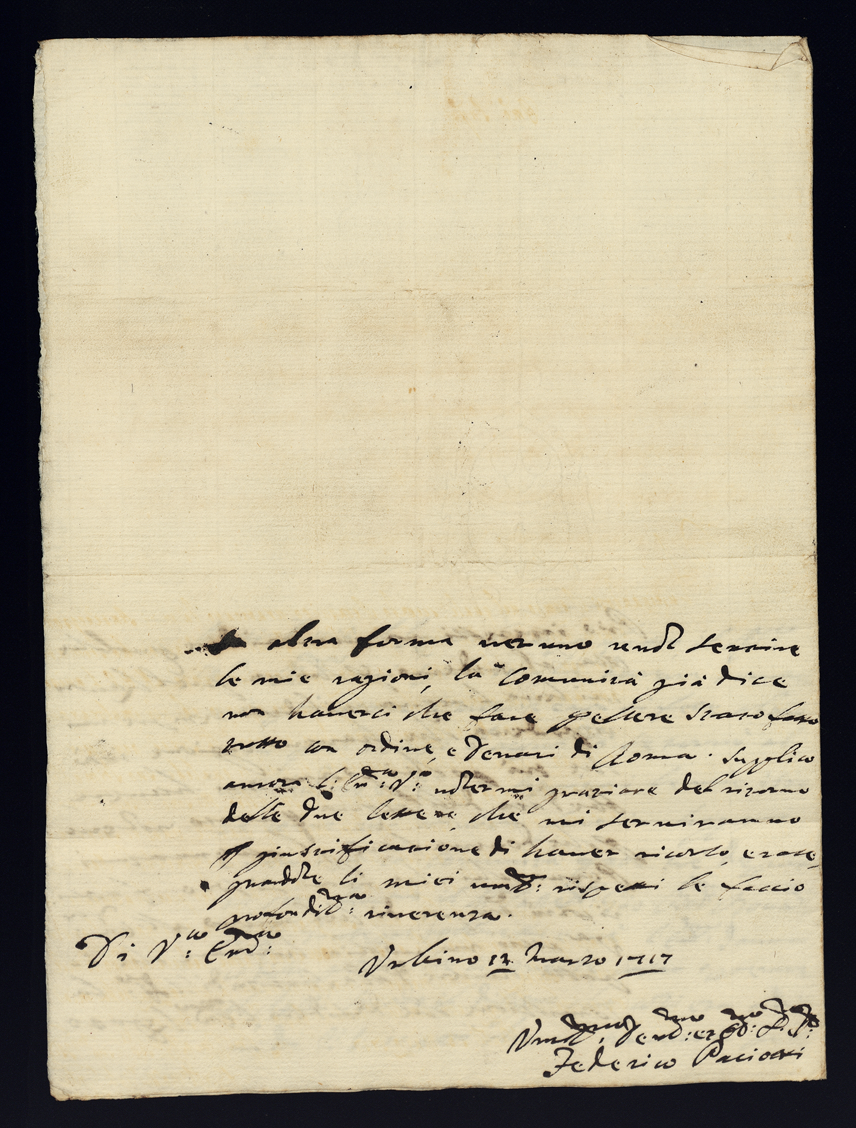 altra forma veruno vendi servire
le mie ragioni, la Comunità già dice
non haverci che fare essere stato fatto
tutto con ordine, e denari di Roma. Supplico
ancor l'Em:za V:ra graziare del ritorno
delle due lettere, che mi serviranno
giustificazione di haver ricorso, e
li miei rispetti le faccio
profondis:ma riverenza.
Di V:ra Em:za
Urbino 12 Marzo 1717
Federico Paciotti